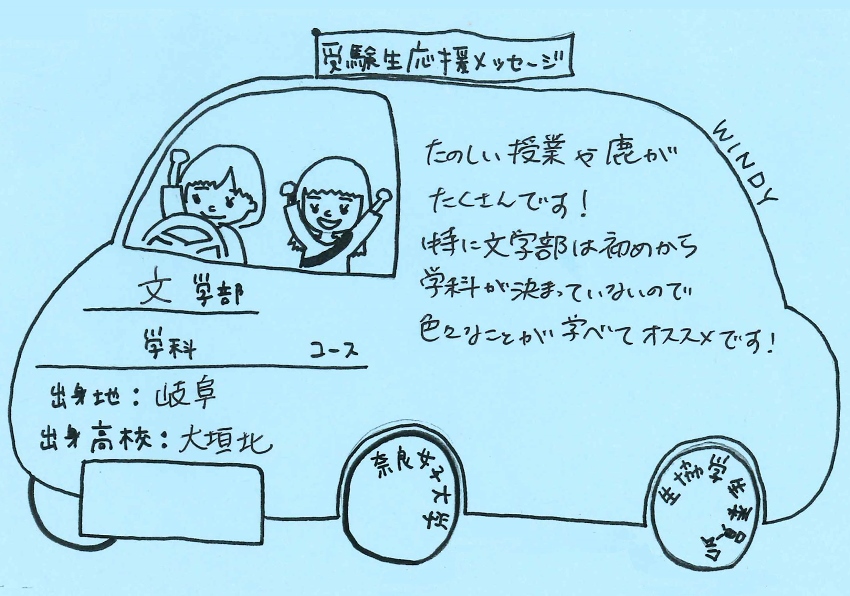 受験生応援メッセージ
WINDY
たのしい授業や鹿が
たくさんです!
特に文学部は初めから
学科が決まっていないので
色々なことが学べてオススメです!
文学部
学科 コース
出身地:岐阜
出身高校:大垣北
奈良女子大学
生協学生委員会